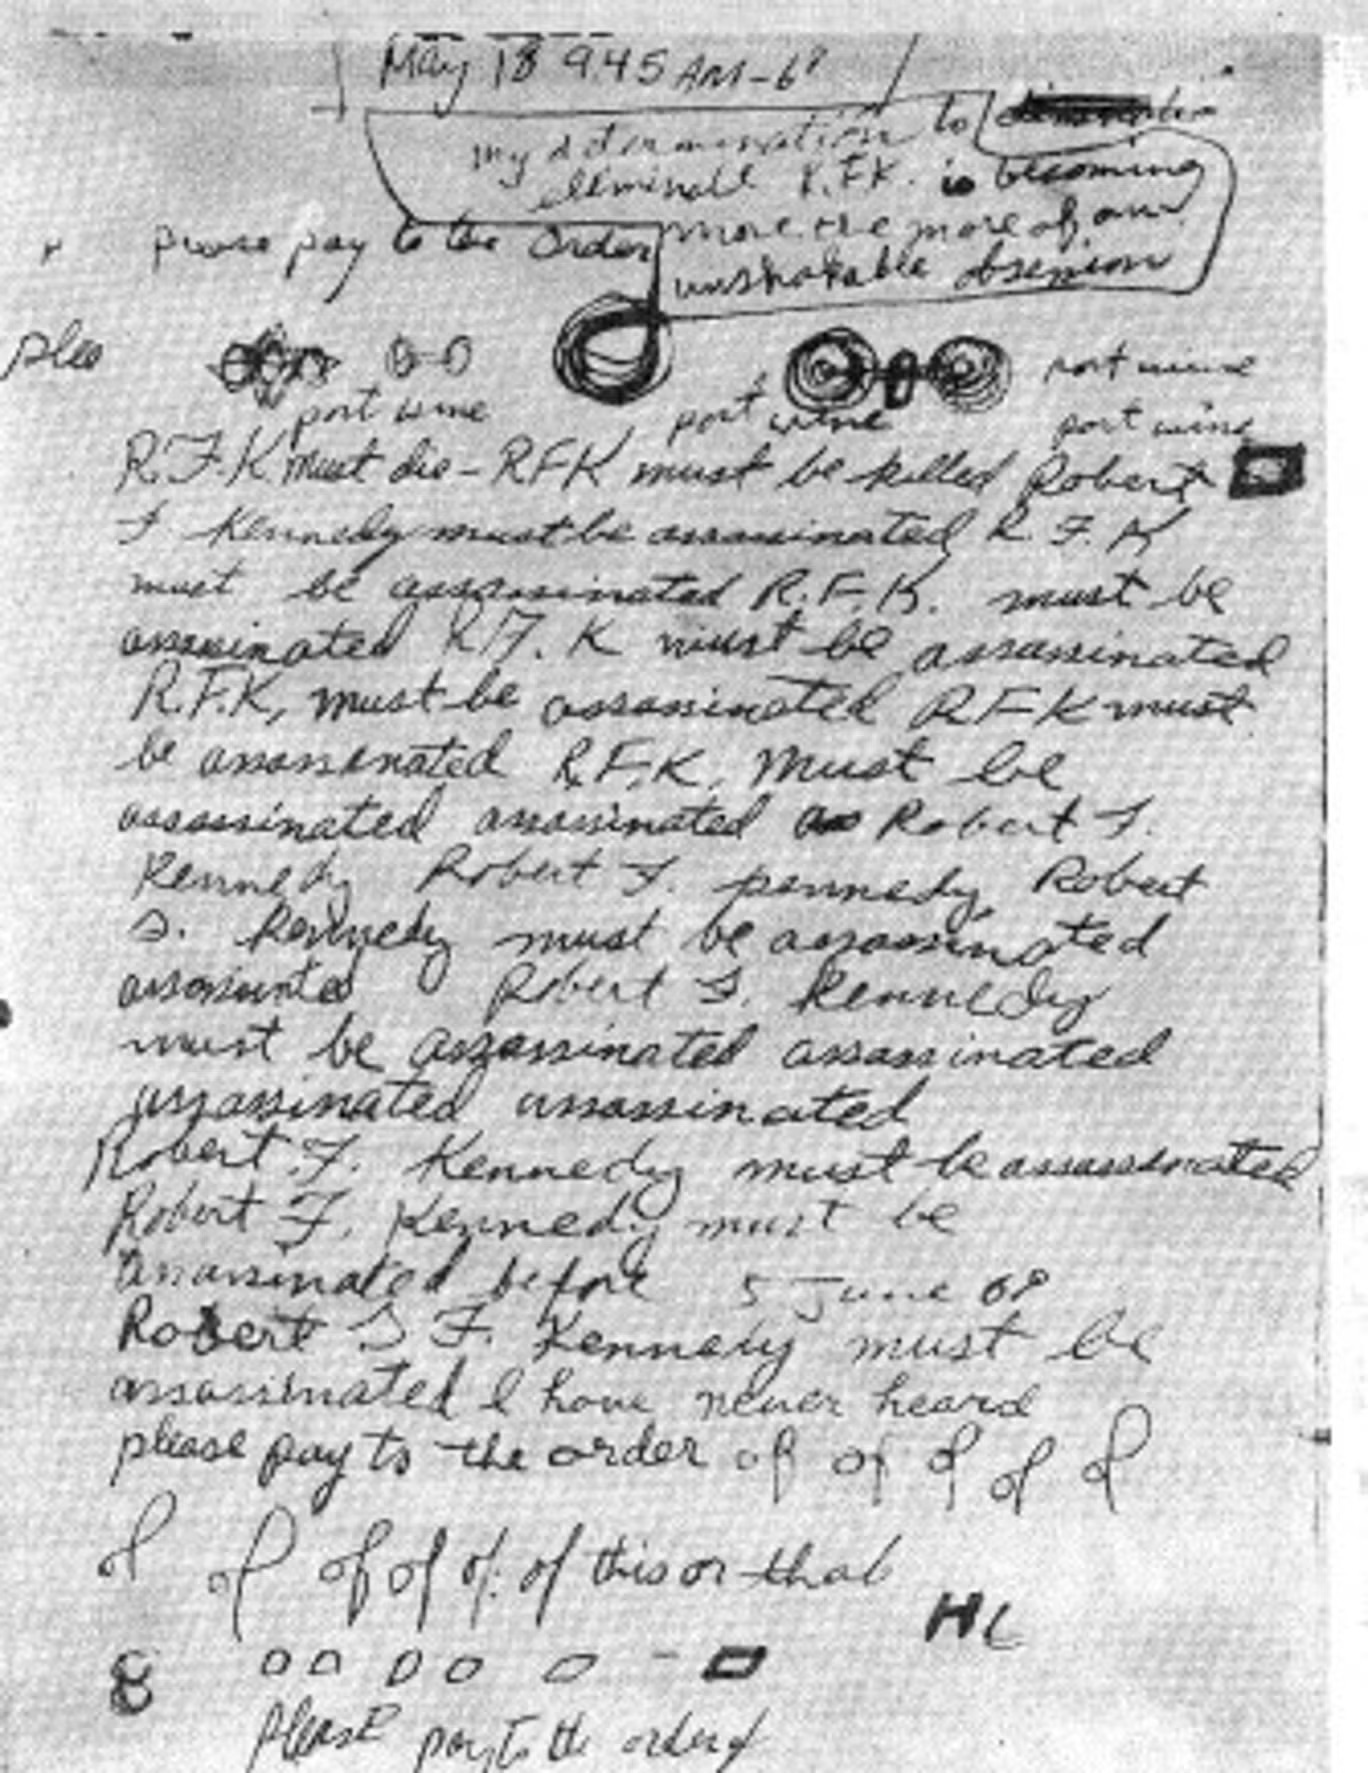 May 18 9.45 AM-68
my determination to
eliminate R.F.K. is becoming
please pay to the order
more the more of an
unshakable obsession
plea
port wine
port wine
port wine
port wine
R.F.K must die - RFK must be killed Robert
F. Kennedy must be assassinated R.F.K
must be assassinated R.F.K. must be
assassinated R.F.K must be assassinated
R.F.K, must be assassinated RFK must
be assassinated R.F.K. Must be
assassinated assassinated Robert F.
Kennedy Robert F. pennedy Robert
F. Kennedy must be assassinated
assassinated Robert F. Kennedy
must be assassinated assassinated
assassinated assassinated
Robert F. Kennedy must be assassinated
Robert F. Kennedy must be
assassinated before 5 June 68
Robert F. Kennedy must be
assassinated I have never heard
please pay to the order of of of of of
of of of of of of this or that
8 0 0 0 0 0 -
please pay to the order of